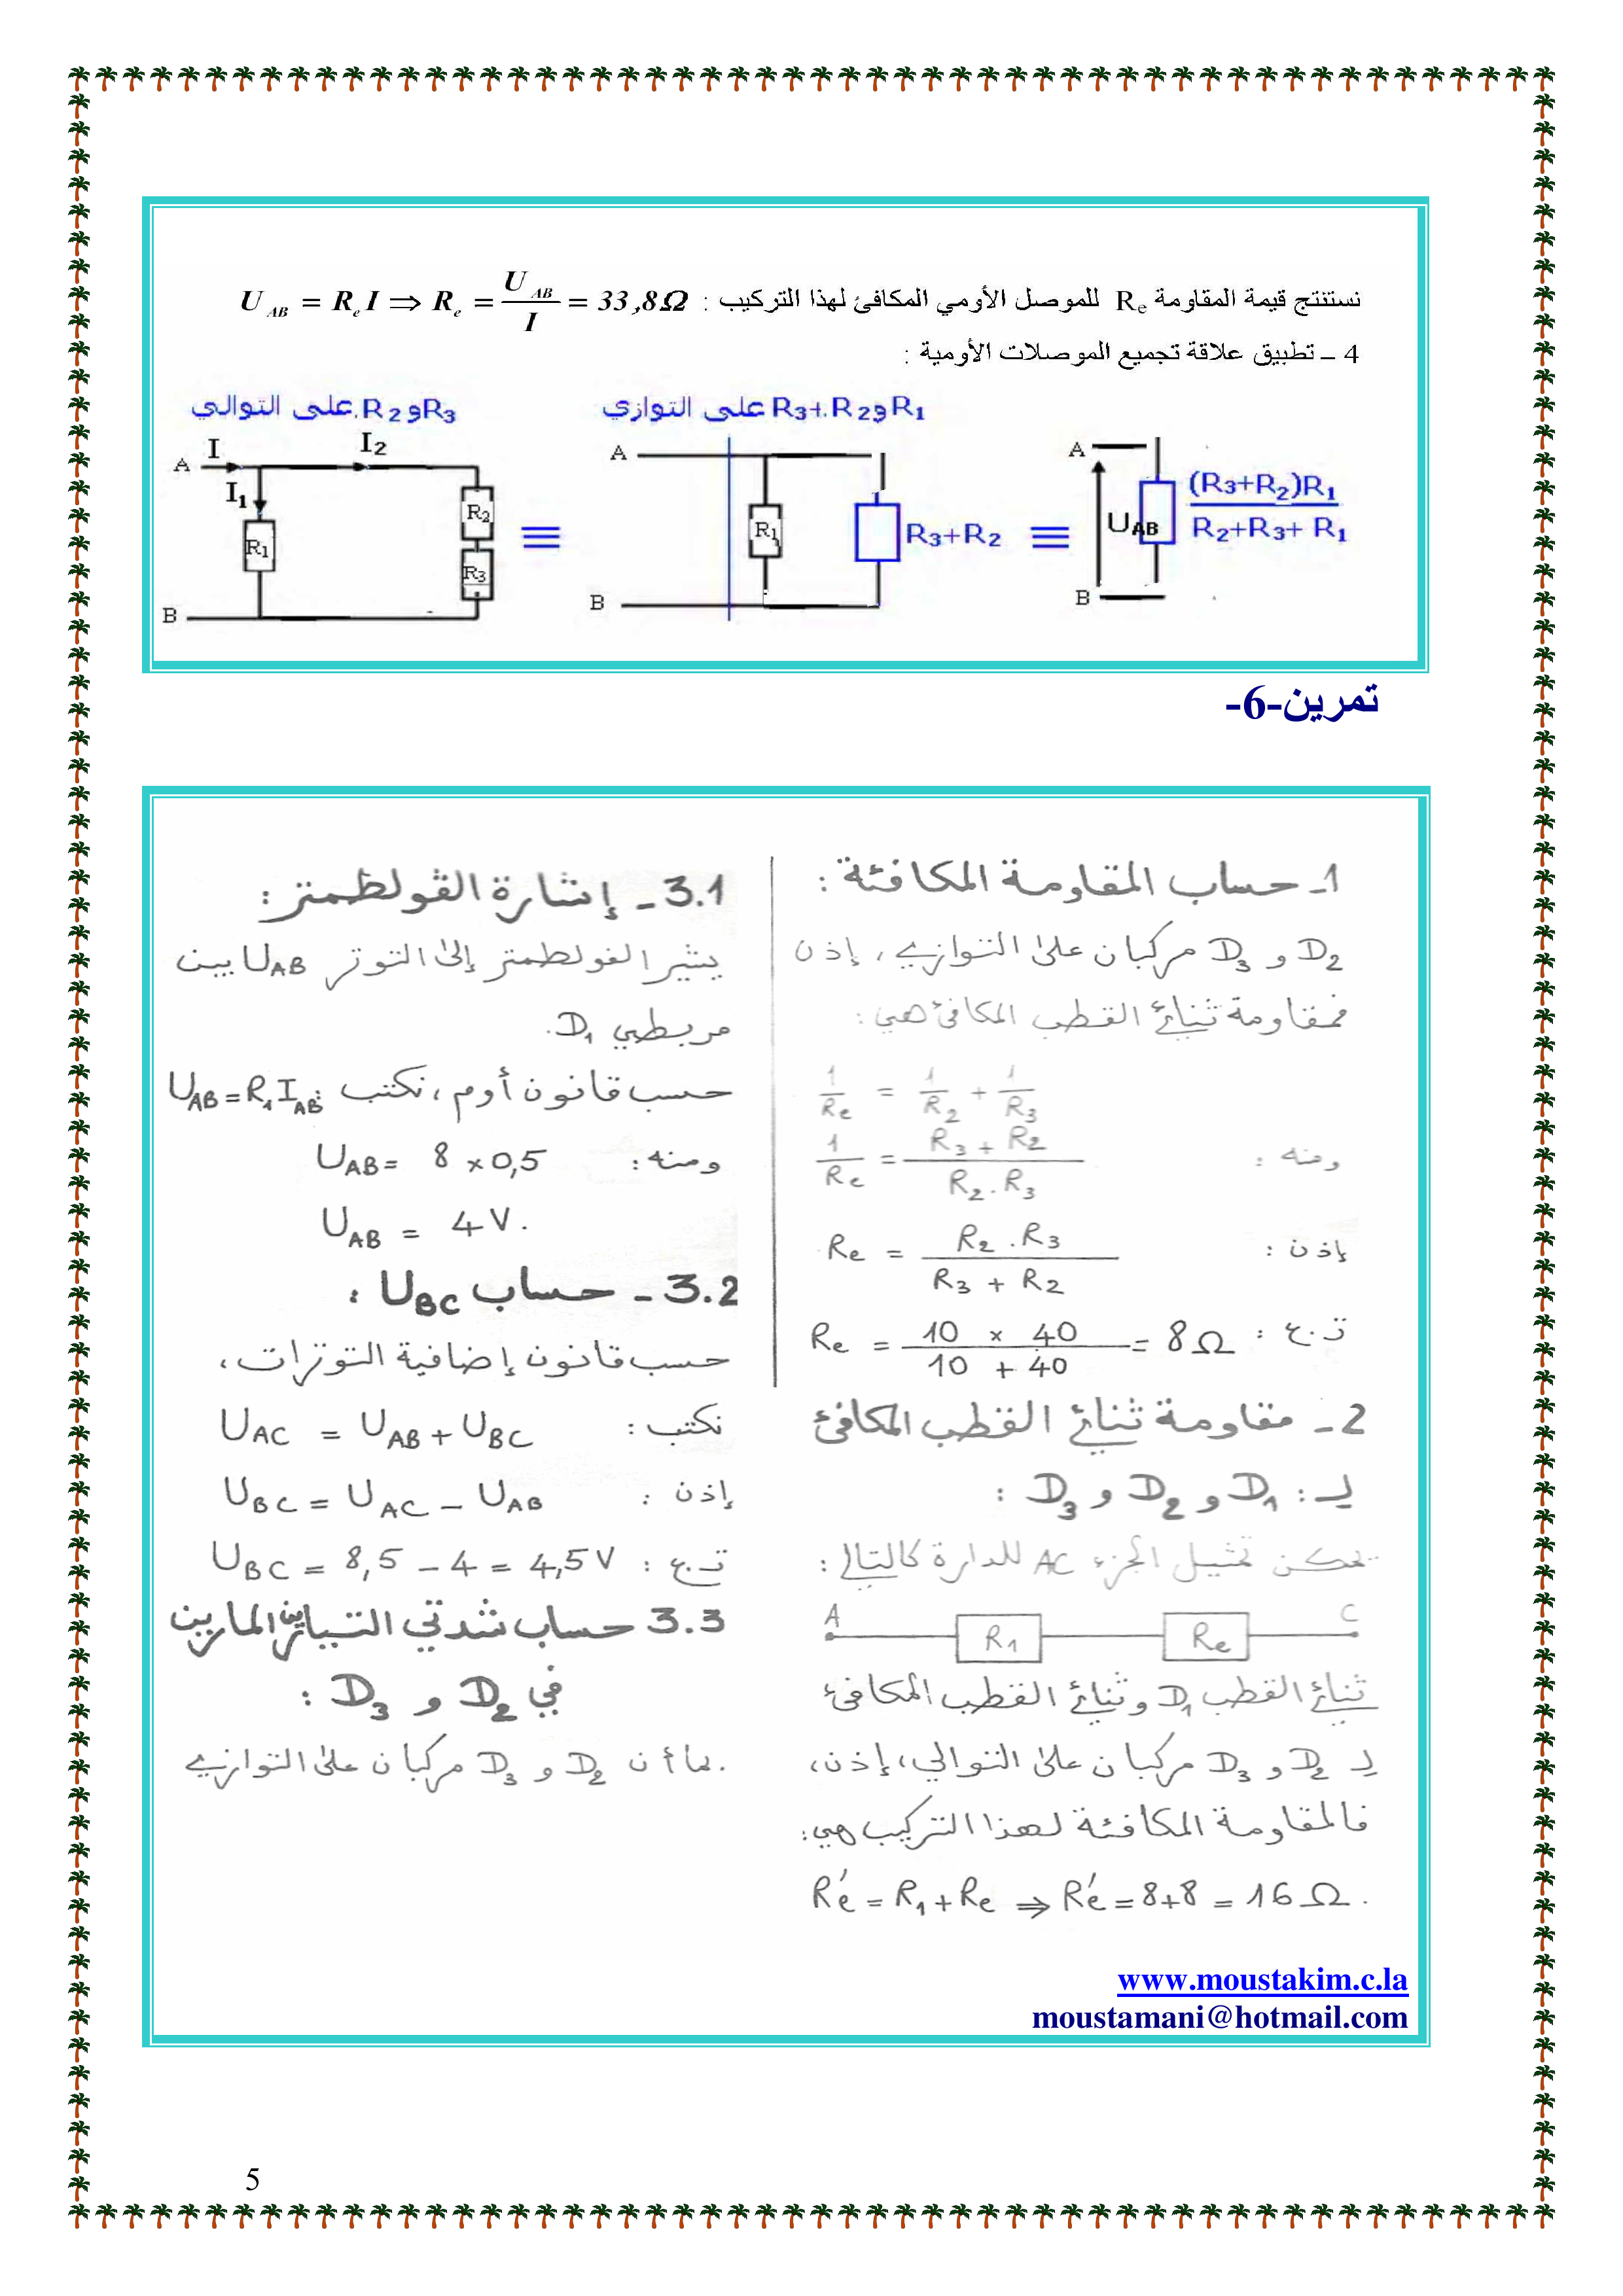 نستنتج قيمة المقاومة Re للموصل الأومي المكافئ لهذا التركيب : U AB = Re I ⇒ Re = U AB / I = 33,8Ω
4 – تطبيق علاقة تجميع الموصلات الأومية :
R3و R2 على التوالي
R1و R3+R2 على التوازي
A I I2
I1
R1
R2
R3
B
≡
A
R1
R3+R2
B
≡
A
UAB
(R3+R2)R1 / R2+R3+ R1
B
تمرين-6-
1ـ حساب المقاومة المكافئة :
D2 و D3 مركبان على التوازي، إذن
فمقاومة ثنائي القطب المكافئ هي :
1/Re = 1/R2 + 1/R3
ومنه : 1/Re = (R3 + R2) / (R2 . R3)
إذن : Re = (R2 . R3) / (R3 + R2)
ت.ع : Re = (10 × 40) / (10 + 40) = 8Ω
2 ـ مقاومة ثنائي القطب المكافئ
لـ : D1 و D2 و D3 :
يمكن تمثيل الجزء AC للدارة كالتالي :
A R1 Re C
ثنائي القطب D1 وثنائي القطب المكافئ
لـ D2 و D3 مركبان على التوالي، إذن،
فالمقاومة المكافئة لهذا التركيب هي:
R'e = R1 + Re ⇒ R'e = 8+8 = 16 Ω .
3.1 ـ إشارة الڤولطمتر :
يشير الڤولطمتر إلى التوتر UAB بين
مربطي D1.
حسب قانون أوم، نكتب UAB = R1 IAB:
ومنه : UAB = 8 × 0,5
UAB = 4 V .
3.2 ـ حساب UBC :
حسب قانون إضافية التوترات،
نكتب : UAC = UAB + UBC
إذن : UBC = UAC – UAB
ت.ع : UBC = 8,5 – 4 = 4,5 V
3.3 حساب شدتي التيارين المارين
في D2 و D3 :
بما أن D2 و D3 مركبان على التوازي
www.moustakim.c.la
moustamani@hotmail.com
5